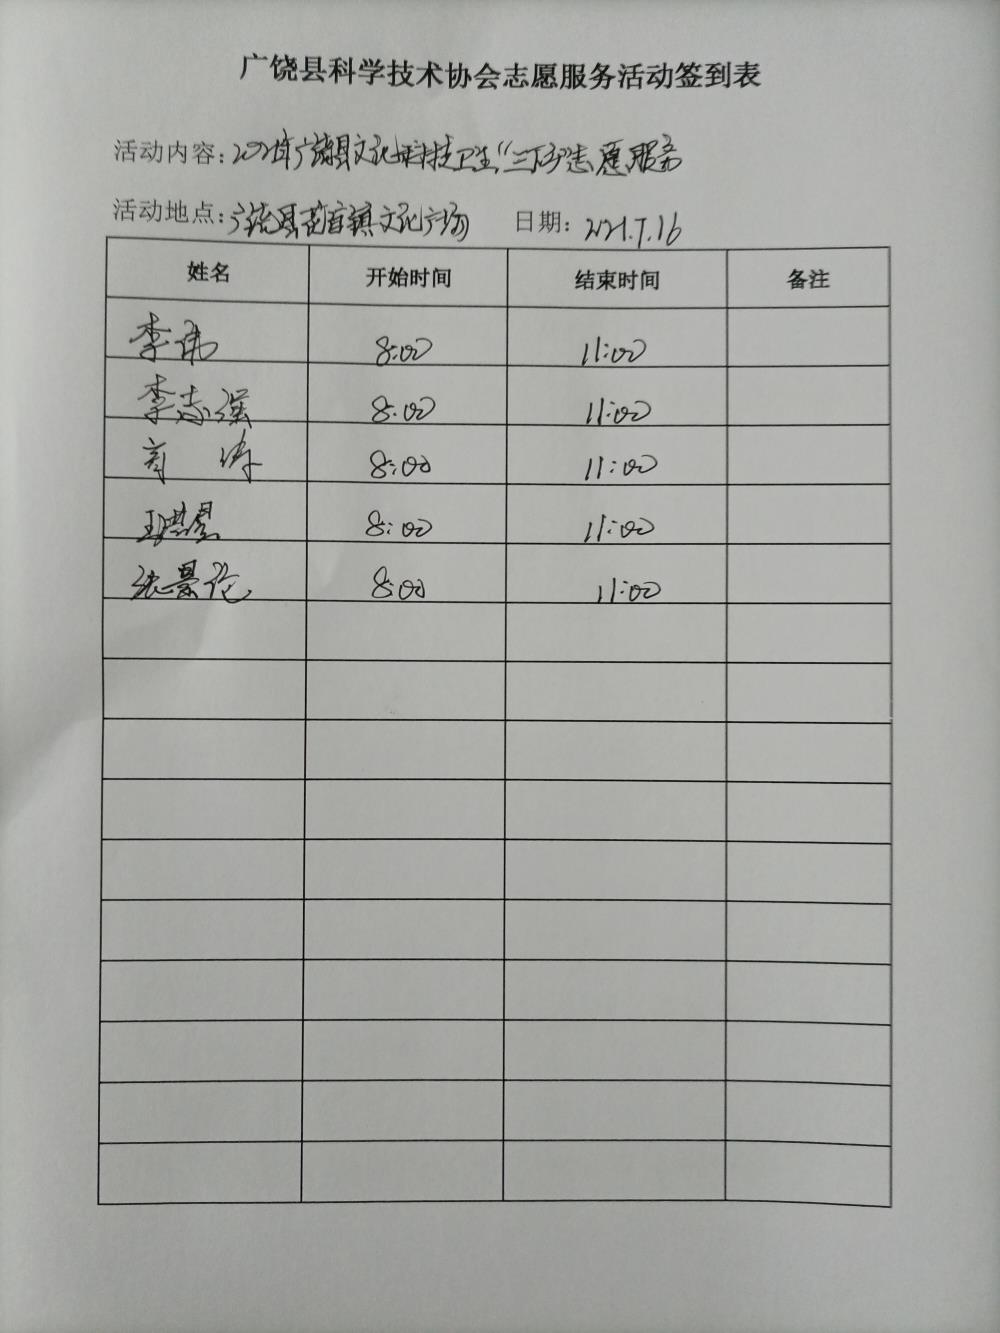 广饶县科学技术协会志愿服务活动签到表
活动内容：2021年广饶县文化科技卫生“三下乡”志愿服务
活动地点：广饶县花官镇文化广场 日期：2021.7.16
姓名 开始时间 结束时间 备注
李伟 8:00 11:00
李志强 8:00 11:00
8:00 11:00
8:00 11:00
张景论 8:00 11:00